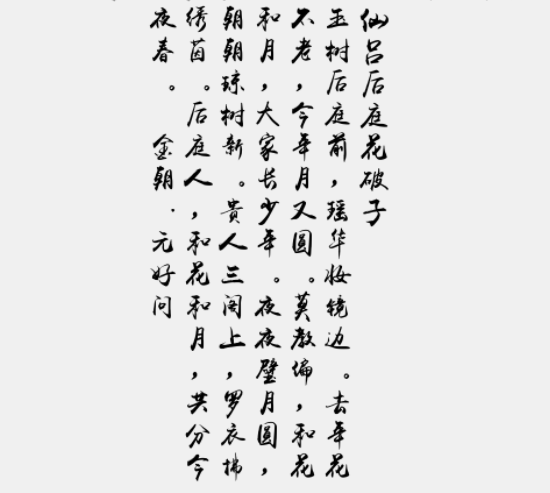 仙吕后庭花破子
玉树后庭前，瑶华妆镜边。去年花
不老，今年月又圆。莫教偏，和花
和月，大家长少年。夜夜璧月圆，
朝朝琼树新。贵人三阁上，罗衣拂
绣茵。后庭人，和花和月，共分今
夜春。 金朝·元好问